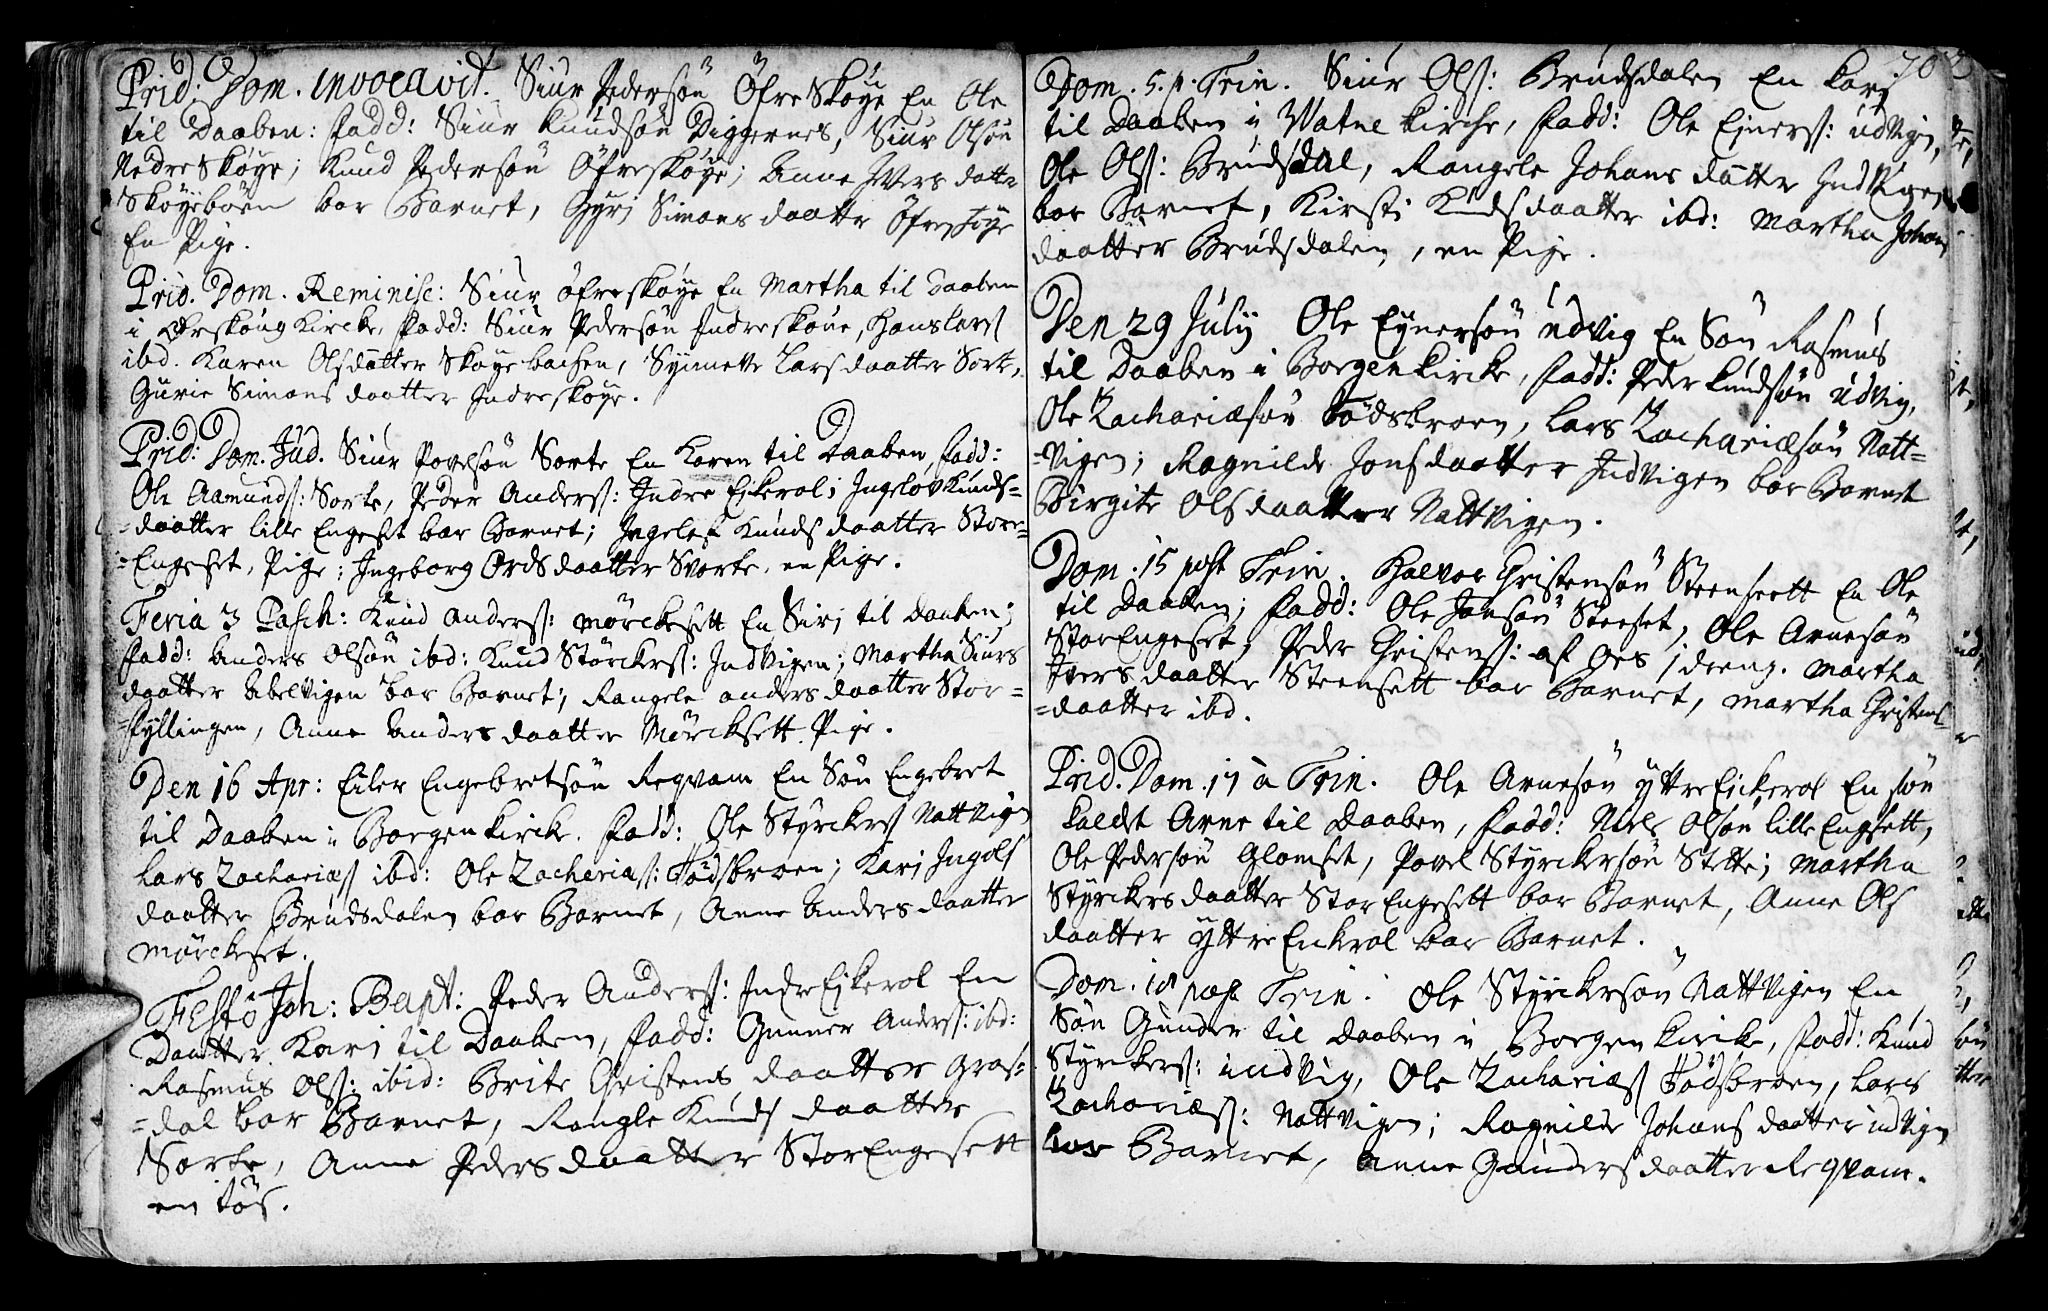 Prid: Dom. invocavit. Siur Pedersøn Öfre Skøye En Ole
til Daaben: fadd: Siur Knudsøn Diggernes, Siur Olsøn
Nedre Skøye; Knud Pedersøn Öfreskøye; Anne Ivers datte
Skøyebøen bar Barnet, Gyri Simons daatte Öfreskøye
En Pige.
Prid. Dom. Reminisc: Siur öfreskøye En Martha til Daaben
i Ørskoug Kircke, fadd: Siur Pedersøn Indreskoue, Hans Larsß
ibd. Karen Olsdatter Skøyebachen, Synnette Larsdaatter Sorte,
Gurie Simons daatter Indreskøye.
Prid: Dom. Jud. Siur Povelsøn Sorte En Karen til Daaben, fadd:
Ole Aamundß: Sorte, Peder Andersß: Indre Eikerol; Ingelov Knuds-
-daatter lille Engeset bar Barnet; Ingelef Knuds daatter Store-
-Engeset, Pige; Ingeborg Ords daatter Svorte, en Pige.
Feria 3 Pasch: Knud Andersß: mørckesett En Siri til daaben;
fadd: Anders Olsøn ibd: Knud Størckersß: Indvigen; Martha Siurs
daatter Abelvigen bar Barnet; Rangele anders daatter Stor-
-fyllingen, Anne Anders daatter Mørcksett. Pige.
Den 16 Apr: Eiler Engebretsøn Reqvam En Søn Engebret
til Daaben i Borgen kircke. fadd: Ole Styrckersß Nattvigen
Lars Zachariæß ibd: Ole Zachariaß: Fødsbroen; Kari Ingels
daatter Brudsdalen bar Barnet, Anne Anders daatter
Mørckeset.
Festo Joh: Bapt: Peder Andersß: Indre Eikerol En
Daatter Kari til Daaben, fadd: Gunner Andersß: ibd:
Rasmus Olsß: ibid: Brite Christens daatter Gras-
-dal bar Barnet, Rangle Knuds daatter
Sorte, Anne Peders daatter StorEngesett
en tøs.
703
Dom. 5. p. Trin. Siur Olsß: Brudsdalen En Kari
til Daaben i Vatne kirche, fadd: Ole Ejnersß: udvigen,
Ole Olsß: Brudsdal, Rangele Johans datter Indvigen
bar Barnet, Kirsti Knuds daatter ibd: Martha Johans
daatter Brudsdalen, en Pige.
Den 29 July Ole Eynersøn udvig En Søn Rasmus
til Daaben i Borgen kircke, fadd: Peder Knudsøn udvig,
Ole Zachariæsøn Fødsbroen, Lars Zachariæsøn Natt-
-vigen; Ragnilde Jons daatter Indvigen bar Barnet
Birgite Ols daatter Nattvigen.
Dom. 15 post Trin. Halvor Christensøn Steensett En Ole
til Daaben; fadd: Ole Jonsøn Steeset, Ole Arnesøn
StorEngeset, Peder Christensß: af Øes, dreng. Martha
Ivers daatter Steensett bar Barnet, Martha Christens-
-daatter ibd.
Prid. Dom. 17 a Trin. Ole Arnesøn ytre Eickerol En søn
kaldet Arne til Daaben, fadd: Niels Olsøn lille Engsett,
Ole Pedersøn Glomset, Povel Styrckersøn Stette; Martha
Styrckers daatter Stor Engesett bar Barnet, Anne Ols
daatter Yttre Enkrol bar Barnet.
Dom. 18 post Trin. Ole Styrckersøn Nattvigen En
Søn Gunder til daaben i Borgen kircke, fadd: Knud
Styrckersß: indvig, Ole Zachariæß Fødsbroen, Lars
Zachariæß: Nattvigen; Ragnilde Johans daatter indvigen
bar Barnet, Anne Gunders daatter Reqvam.